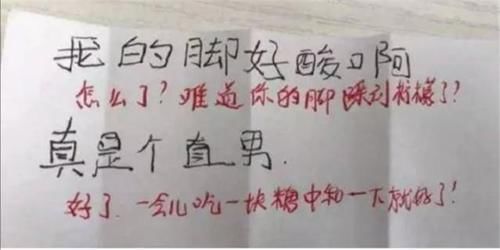 我的脚好酸啊
怎么了？难道你的脚踩到柠檬了？
真是个直男.
好了.一会儿吃一块糖中和一下就好了！